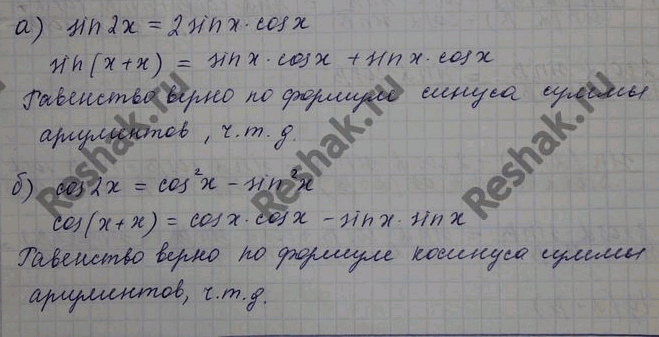 а) sin2x = 2sinx·cosx
sin(x+x) = sinx·cosx + sinx·cosx
Равенство верно по формуле синуса суммы
аргументов, ч.т.д.
б) cos2x = cos²x - sin²x
cos(x+x) = cosx·cosx - sinx·sinx
Равенство верно по формуле косинуса суммы
аргументов, ч.т.д.
Reshak.ru
Reshak.ru
Reshak.ru